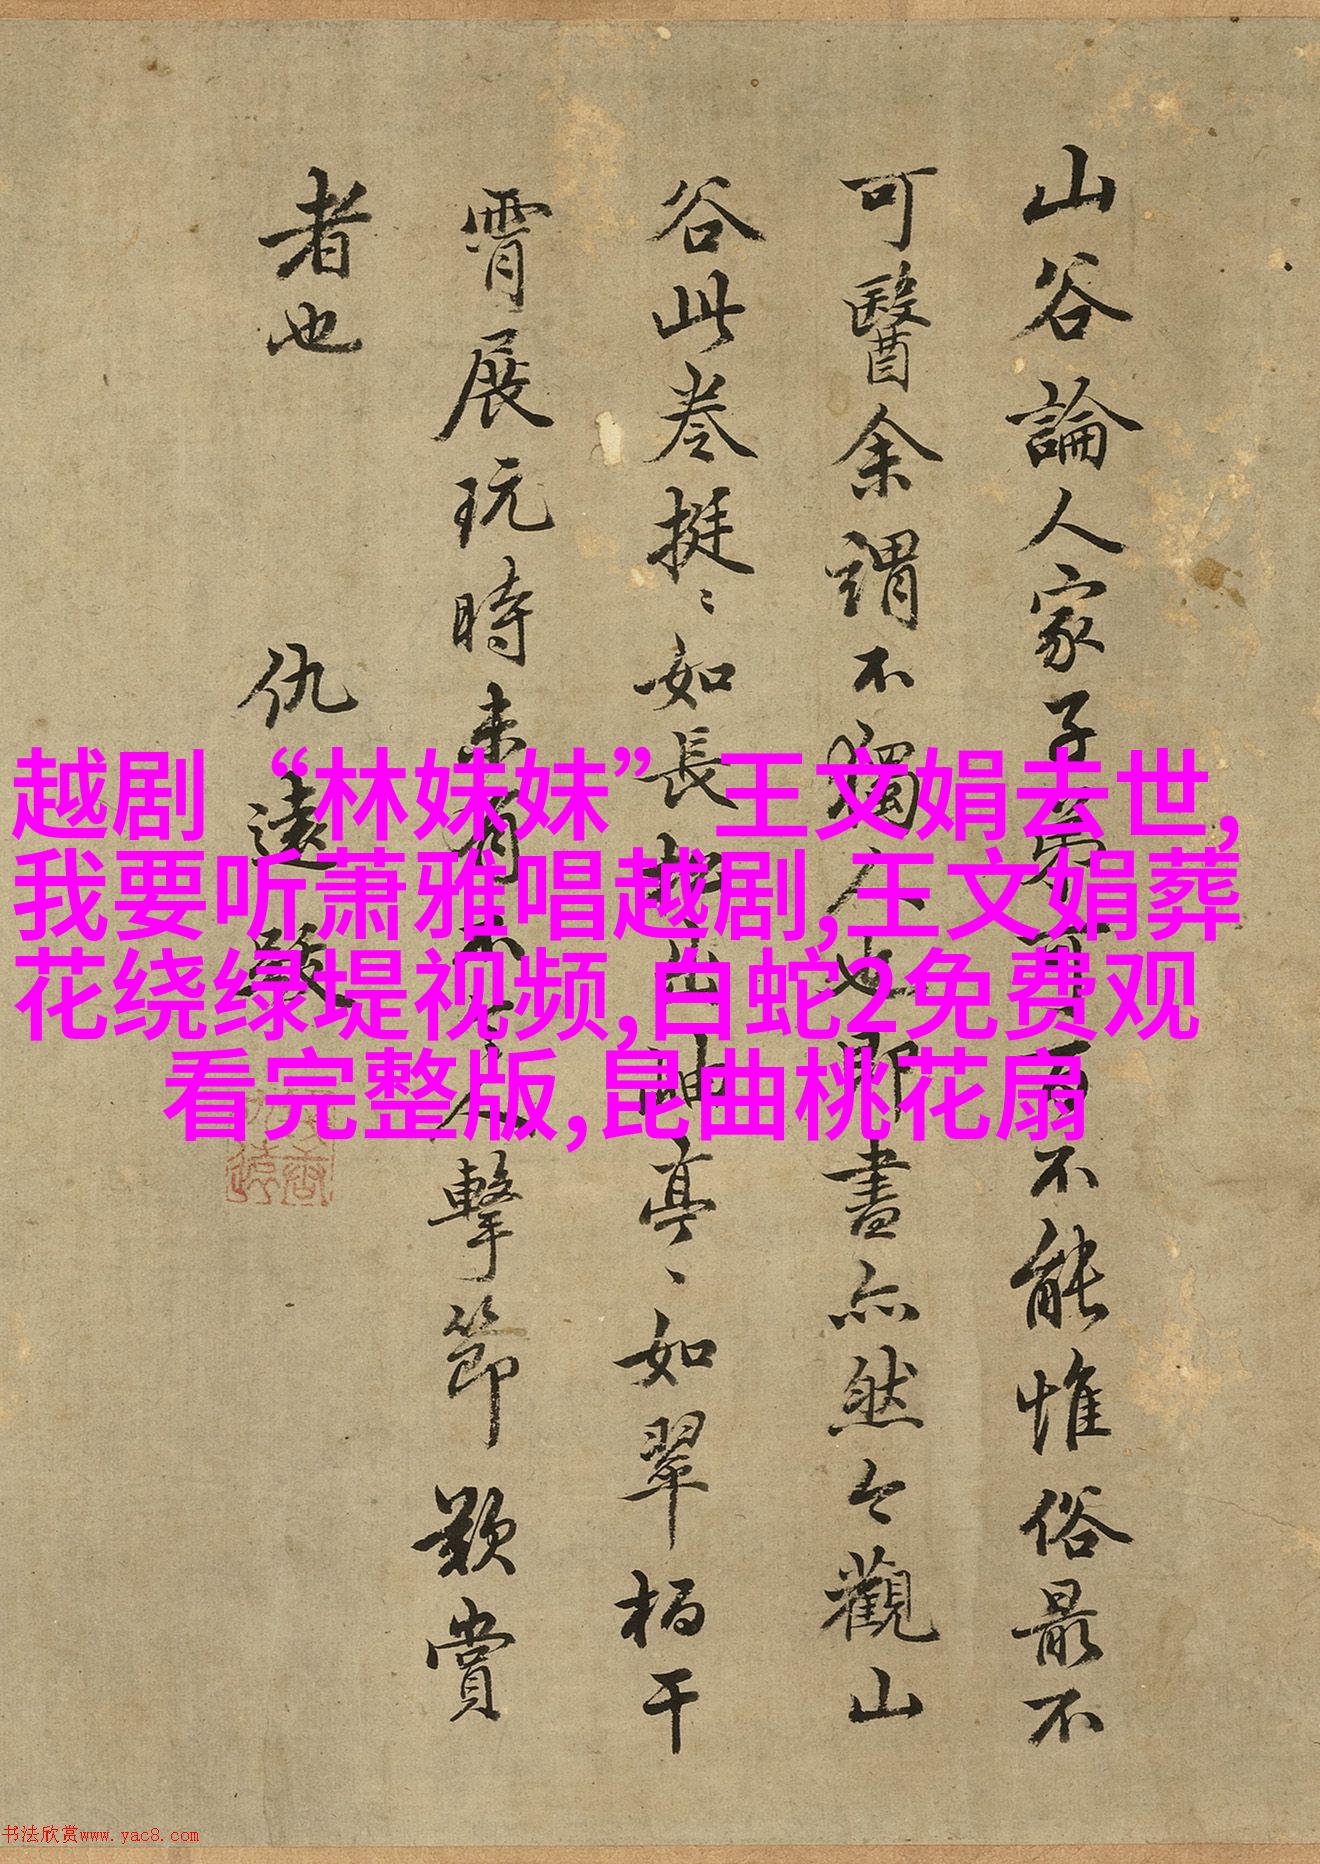 山谷論人家子弟百不能惟俗最不
可醫余謂不獨人也即畫亦然今觀山
谷此卷挺〻如長松出岫亭〻如翠柏干
霄展玩時未有不令人擊節歎賞
者也
仇遠題
越剧“林妹妹”王文娟去世,
我要听萧雅唱越剧,王文娟葬
花绕绿堤视频,白蛇2免费观
看完整版,昆曲桃花扇
书法欣赏www.yac8.com